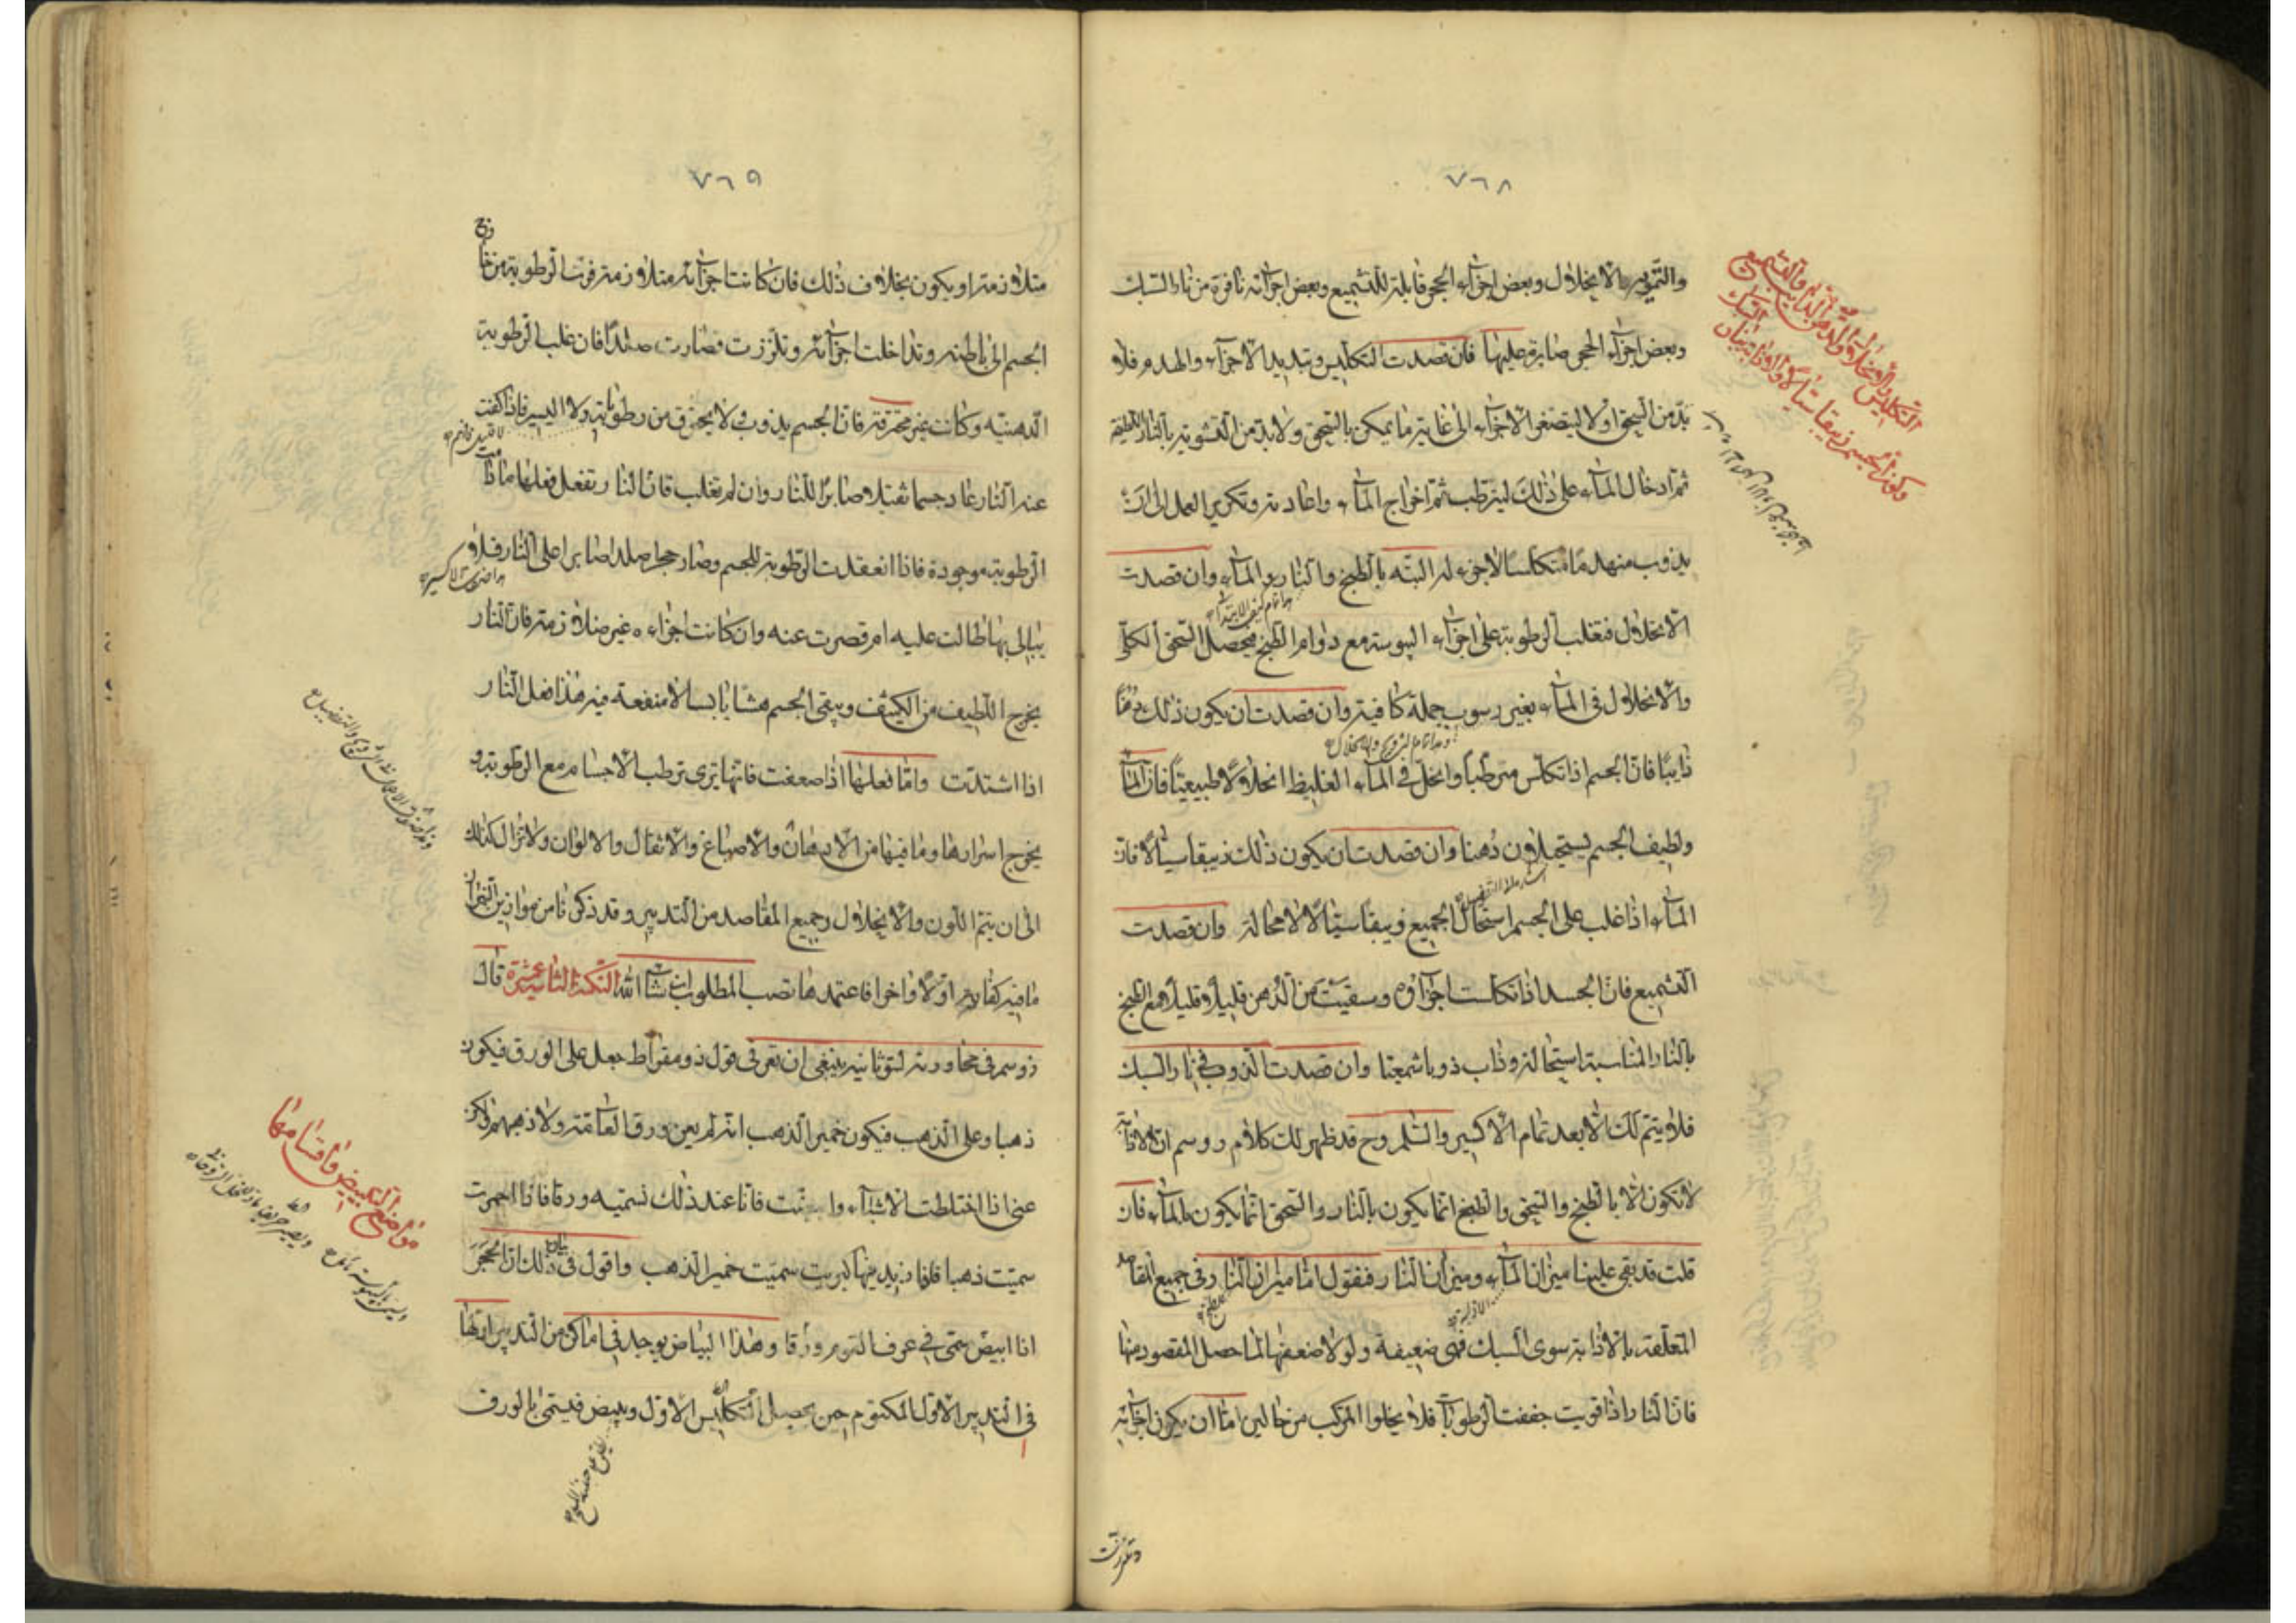 ٧٦٨
والتمويه بالانحلال وبعض اجزاء الحجر قابلة للتشميع وبعض اجزائه نافرة من نار السبك
وبعض اجزاء الحجر صابرة عليها فان قصدت التكليس وتبديد الاجزاء والهدم فلا
بد من السحق اولا ليتصغر الاجزاء الى غاية ما يمكن بالسحق ولا بد من التشوية بالنار اللطيفة
ثم ادخال الماء على ذلك ليترطب ثم اخراج الماء واعادته وتكرير العمل الى ان
يذوب منهدما متكلسا لا جزء له البتة بالطبخ والنار والماء وان قصدت
الانحلال فتغلب الرطوبة على اجزاء اليبوسة مع دوام الطبخ فيحصل السحق الكلي
والانحلال في الماء بغير رسوب جملة كافية وان قصدت ان يكون ذلك دهنا
ذايبا فان الجسم اذا تكلس مترطبا وانحل في الماء الغليظ انحلالا طبيعيا فان الماء
ولطيف الجسم يستحيلون دهنا وان قصدت ان يكون ذلك زيبقا سيالا فان
الماء اذا غلب على الجسم استحال الجميع زيبقا سيالا لا محالة وان قصدت
التشميع فان الجسد اذا تكلست اجزاؤه وسقيت من الدهن قليلا قليلا مع الطبخ
بالنار المناسبة استحالة وذاب ذوبا شمعيا وان قصدت الذوب في نار السبك
فلا يتم لك الا بعد تمام الاكسير والسلم وح قد ظهر لك كلام روسم ان الاذابة
لا تكون الا بالطبخ والسحق والطبخ انما يكون بالنار والسحق انما يكون بالماء فان
قلت قد بقي علينا ميزان الماء وميزان النار فنقول اما ميزان النار في جميع المقاصد
المتعلقة بالاذابة سوى السبك فهي ضعيفة ولولا ضعفها لما حصل المقصود منها
فان النار اذا قويت جففت الرطوبات فلا يخلوا المركب من حالين اما ان يكون اجزائه
التكليس والانحلال والدهن الذايب والتشميع
وكون الجسم زيبقا سيالا والاذابة بنار السبك
٧٦٩
متلازمة او يكون بخلاف ذلك فان كانت اجزائه متلازمة فرت الرطوبة من خارج
الجسم الى باطنه وتداخلت اجزائه وتلززت فصارت صلدا فان غلب الرطوبة
الدهنية وكانت غير محترقة فان الجسم يذوب ولا يحترق من رطوباته ولا اليسير فاذا كفت
عنه النار عاد جسما ثقيلا صابرا للنار وان لم تغلب فان النار تفعل فعلها ما دامت
الرطوبة موجودة فاذا انعقدت الرطوبة للجسم وصار حجرا صلدا صابرا على النار فلا
يبالي بها طالت عليه ام قصرت عنه وان كانت اجزاءه غير متلازمة فان النار
يخرج اللطيف من الكثيف ويبقى الجسم هشا يابسا لا منفعة فيه هذا فعل النار
اذا اشتدت واما فعلها اذا ضعفت فانها ترى ترطب الاجسام مع الرطوبة و
يخرج اسرارها وما فيها من الادهان والاصباغ والاثقال والالوان ولا تزال كذلك
الى ان يتم اللون والانحلال وجميع المقاصد من التدبير وقد ذكرنا من موازين النيران
ما فيه كفاية اولا واخرا فاعتمدها تصب المطلوب ان شاء الله النكتة الثانية عشرة قال
ذوسم في محاورته لثوثانيه ينبغي ان تعرفي قول ذومقراط جعل على الورق فيكون
ذهبا وعلى الذهب فيكون خمير الذهب انه لم يعن ورق العامة ولا ذهبهم ولكن
عنى اذا اختلطت الاشياء وابيضت فانا عند ذلك نسميه ورقا فاذا احمرت
سميت ذهبا فاذا زيد فيها كبريت سميت خمير الذهب واقول في بيان ذلك ان الحجر
اذا ابيض سمى في عرف القوم ورقا وهذا البياض يوجد في اماكن من التدبير اولها
في التدبير الاول المكتوم حين يحصل له التكليس الاول ويبيض فيسمى بالورق
مواضع التبييض واقسامها